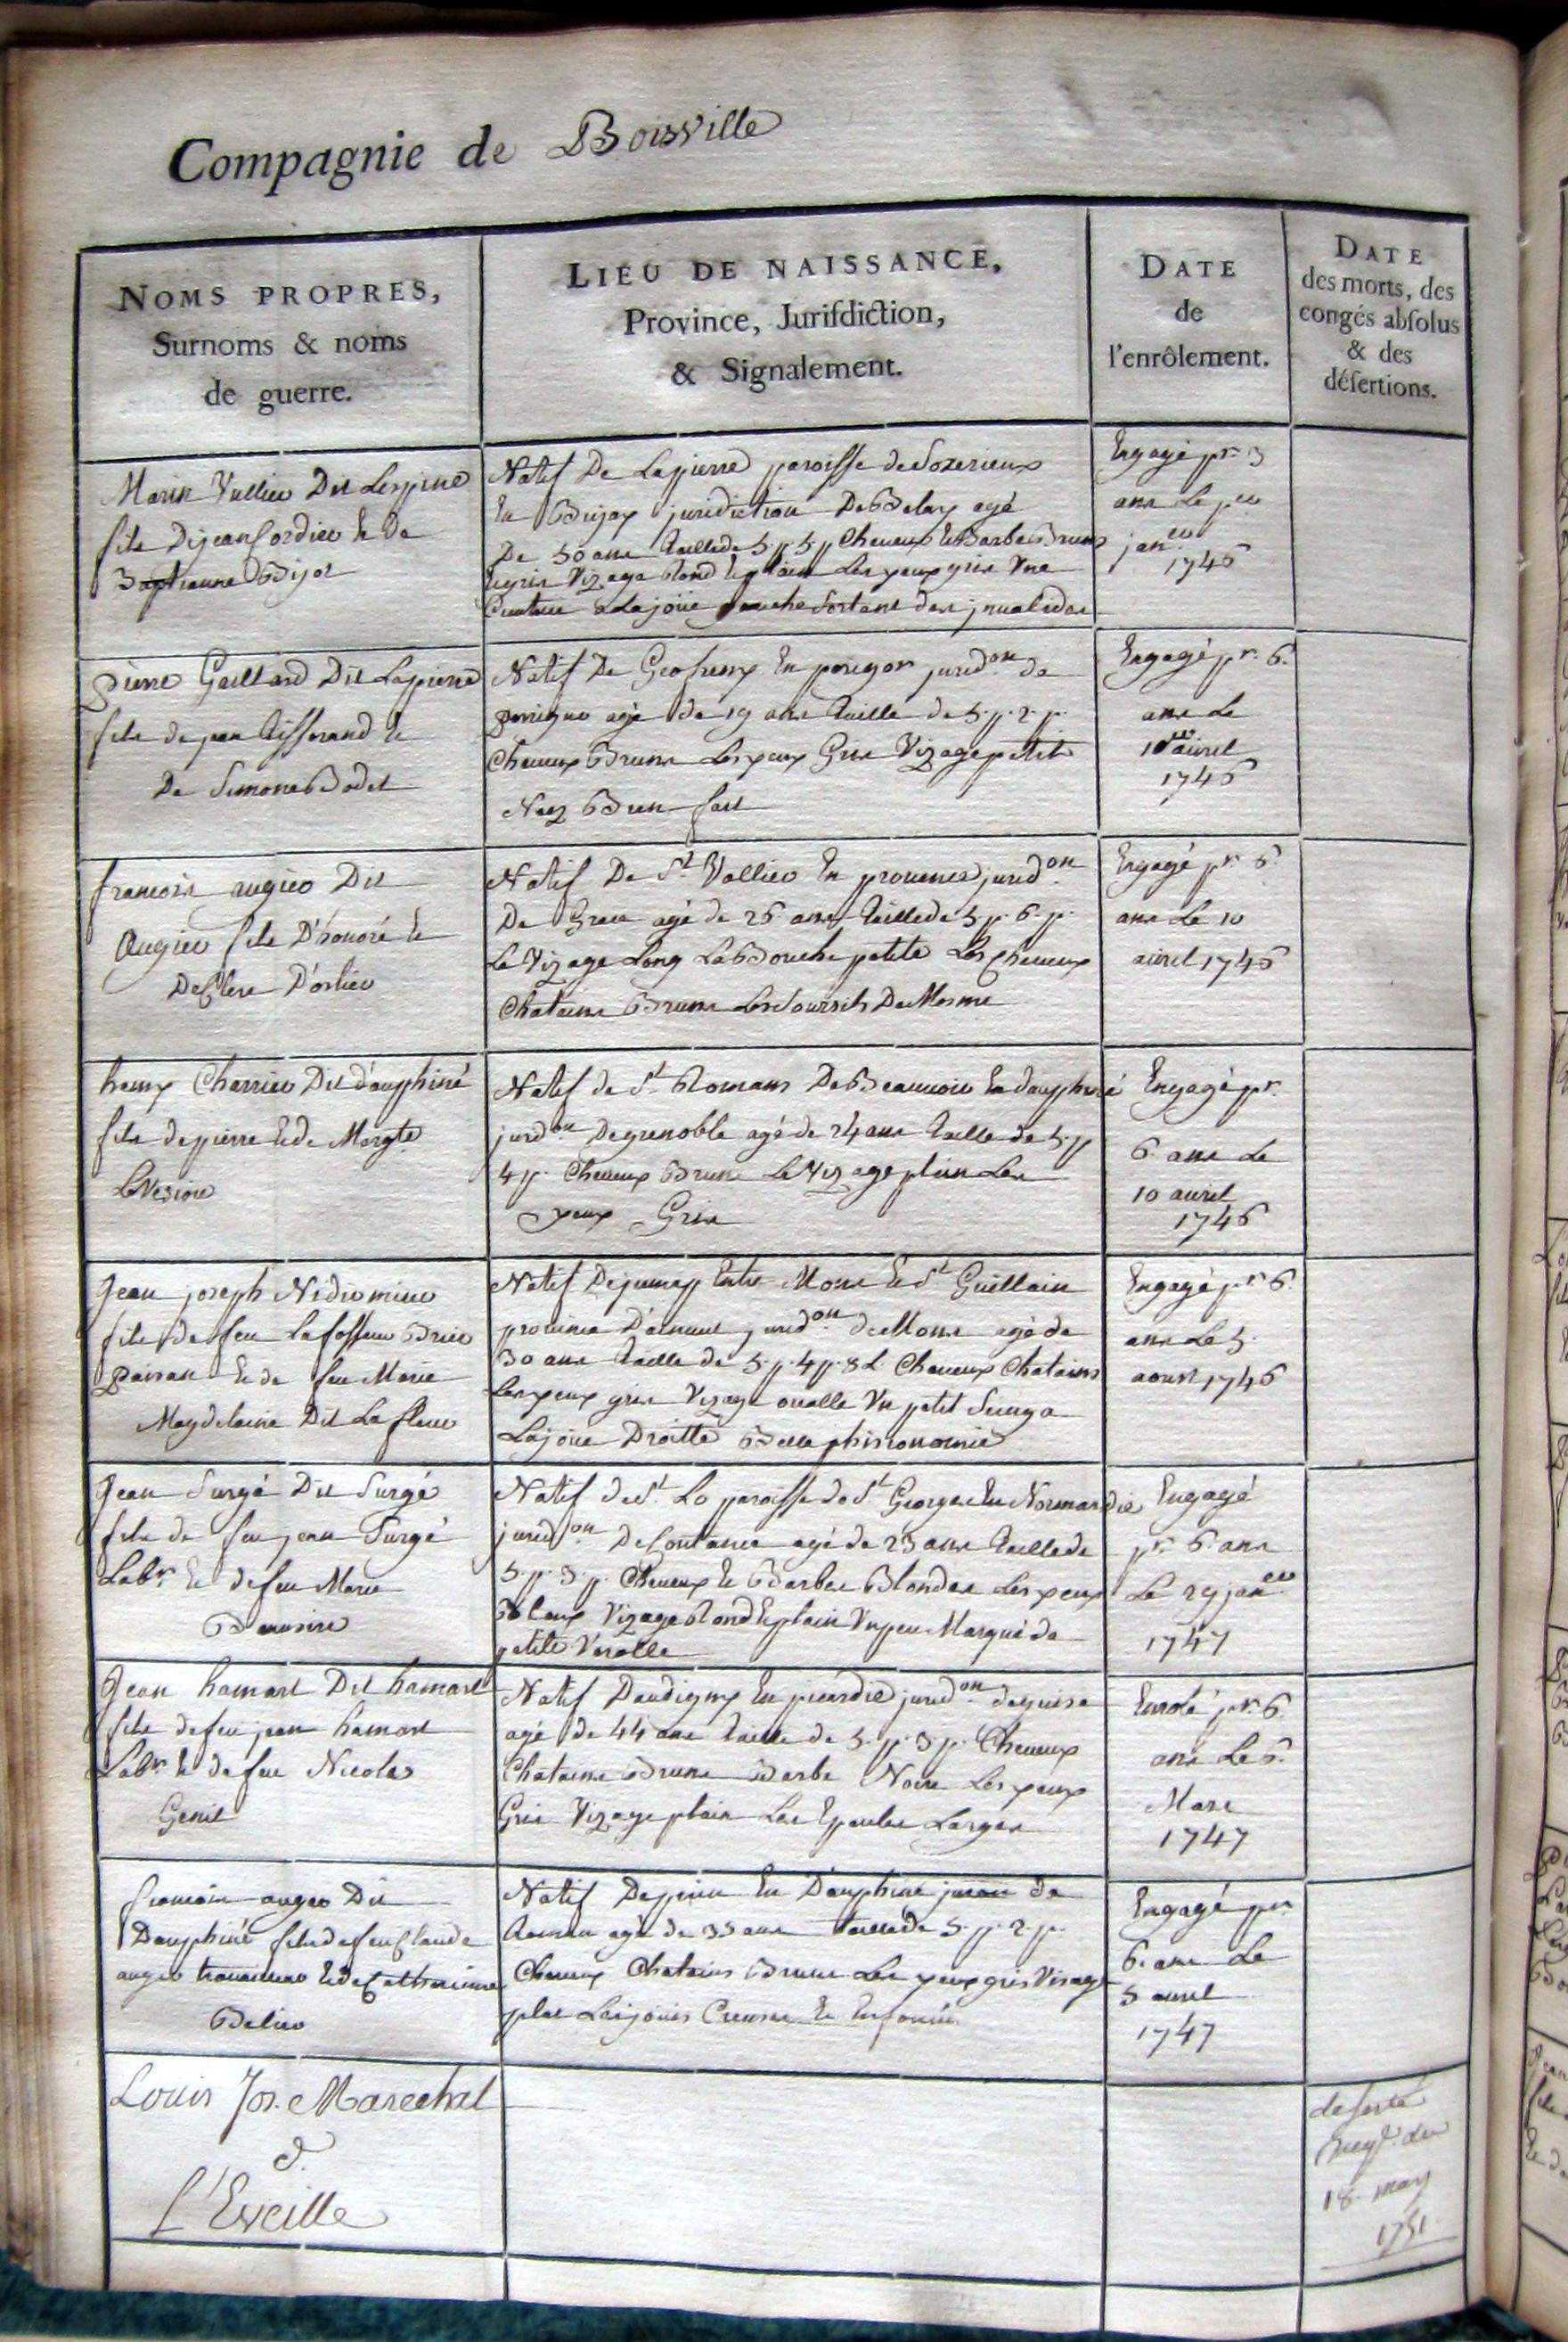 Compagnie de Boisville
NOMS PROPRES,
Surnoms & noms
de guerre.
LIEU DE NAISSANCE,
Province, Jurisdiction,
& Signalement.
DATE
de
l'enrôlement.
DATE
des morts, des
congés absolus
& des
désertions.
Marin Vullier Dit Lespine
fils De jean Cordier et De
Bijot
Natif De Lapierre paroisse de
En Bujay juridiction De Belay agé
De 50 ans taille de 5. p. 5 p Cheveux et Barbe Bruns
et gris Vizage Rond et plain Les yeux gris Une
a La joüe gauche Sortant des jnualides
Engagé pr. 3
ans Le per
janer
1746
pierre Gaillard Dit Lapierre
fils de jean et
De Simone Bodet
Natif De En jurid.on de
agé de 19 ans taille de 5. p. 2. p.
Cheveux Bruns Les yeux Gris Vizage petit
Nez Bien fait
Engagé pr. 6.
ans Le
10 avril
1746
francois augier Dit
Augier fils D'honoré et
De Clere
Natif De St Vallier En prouence jurid.on
De Grace agé de 26 ans taille de 5 p. 6. p.
Le Vizage Long La Bouche petite Les Cheveux
Chatains Bruns Les Sourcils De Mesme
Engagé pr 6.
ans Le 10
avril 1746
henry Charrier Dit dauphiné
fils de pierre et de Margte.
Natif de St Romans De Beauuoir En dauphiné
jurid.on De grenoble agé de 24 ans taille de 5. p
4 p. Cheveux Bruns Le Vizage plain Les
yeux Gris
Engagé pr.
6 ans Le
10 auril
1746
Jean joseph
fils de feu
paisan et de feu Marie
Magdelaine Dit La fleur
Natif De jumap Entre Mons et St Guillain
prouince jurid.on de Mons agé de
30 ans taille de 5. p. 4 p. 8 L. Cheveux Chatains
Les yeux gris Vizage oualle Un petit Seing a
La joüe Droitte Belle phisionomie
Engagé pr 6.
ans Le 5.
aoust 1746
Jean Surgé Dit Surgé
fils de feu jean Surgé
Labr. et de feu Marie
Natif de St Lo paroisse de St Georges En Normandie
jurid.on De Coutance agé de 23 ans taille de
5. p. 3. p. Cheveux et Barbe Blondes Les yeux
Bleux Vizage Rond et plain Un peu Marqué de
petite Verolle
Engagé
pr. 6 ans
Le 29 janer
1747
Jean hamart Dit hamart
fils de feu jean hamart
Labr. et de feu Nicolas
Genit
Natif Daudigny En picardie jurid.on de guise
agé de 44 ans taille de 5. p. 3 p. Cheveux
Chatains Bruns Barbe Noire Les yeux
Gris Vizage plain Les Epaules Larges
Enrolé pr. 6.
ans Le 6.
Mars
1747
francois auger Dit
Dauphiné fils de feu Claude
auger et de Catherinne
Belier
Natif En Dauphiné de
agé de 35 ans taille de 5. p. 2. p.
Cheveux Chatains Bruns Les yeux gris Visage
plat Les joües Creuses et Enfoncées
Engagé pr
6. ans Le
5 auril
1747
Louis Jos. Marechal
d.
L'Eveille
deserté
du
18. may
1751.